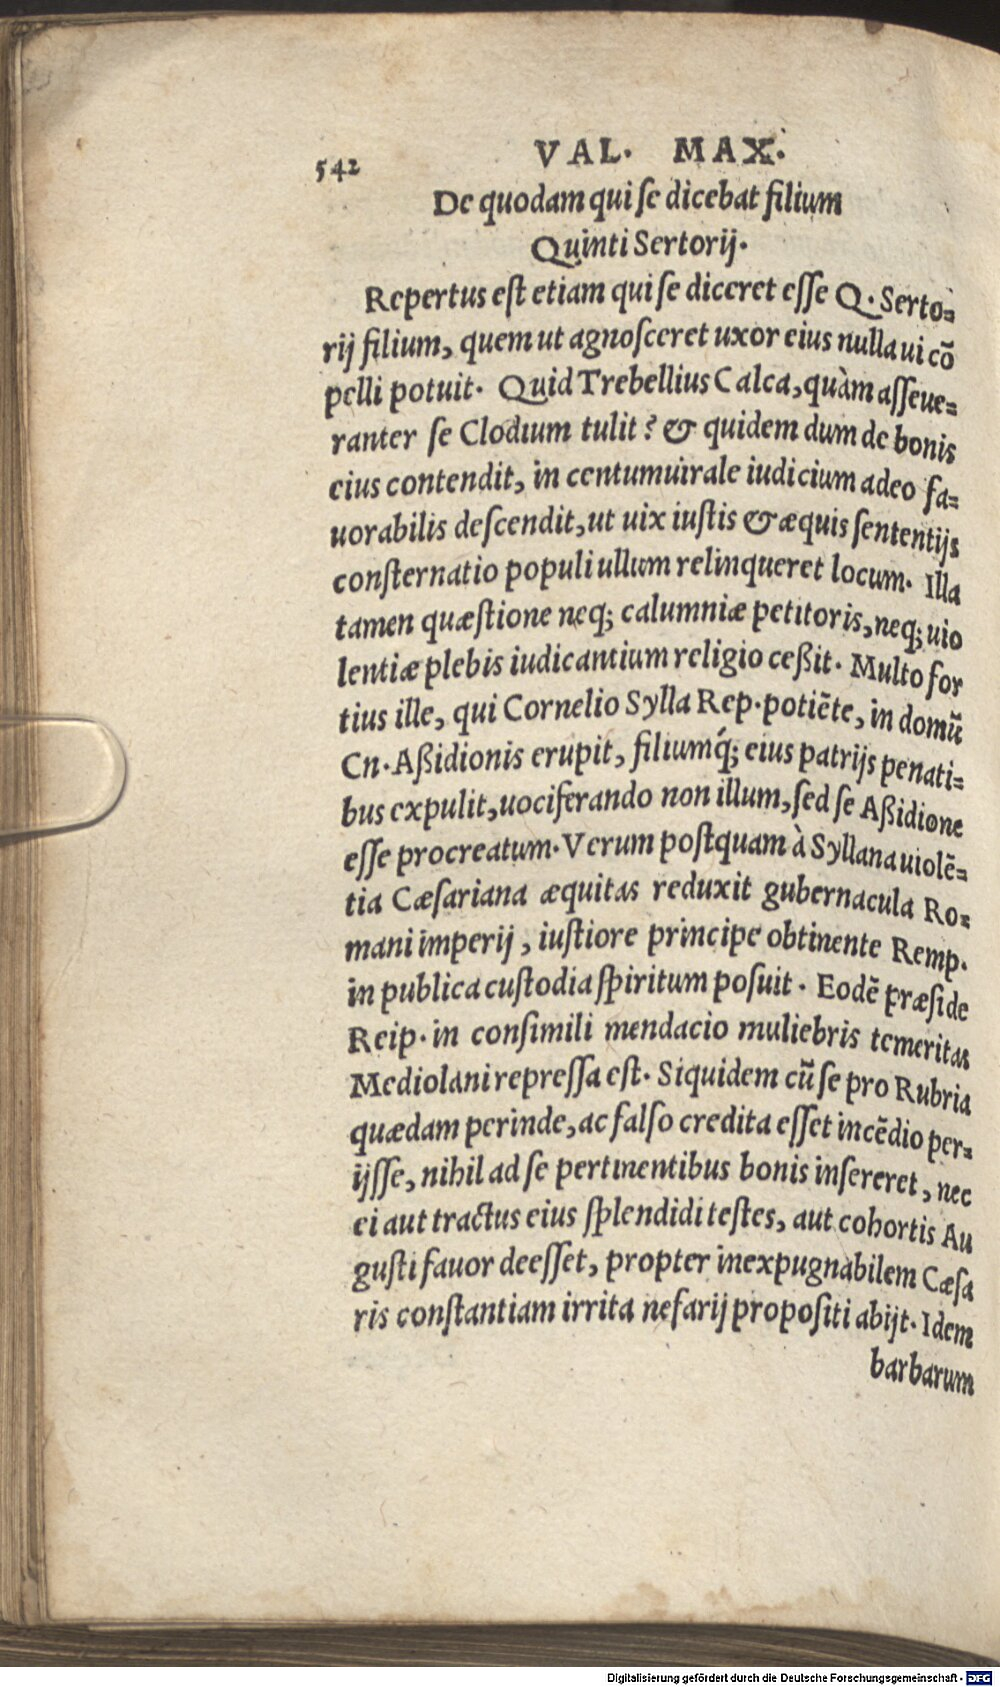 542 VAL. MAX.
De quodam qui se dicebat filium
Quinti Sertorij.
Repertus eſt etiam qui ſe diceret eſſe Q. Serto=
rij filium, quem ut agnoſceret uxor eius nulla ui cō
pelli potuit. Quid Trebellius Calca, quàm aſſeue=
ranter ſe Clodium tulit? & quidem dum de bonis
eius contendit, in centumuirale iudicium adeo fa=
uorabilis deſcendit, ut uix iuſtis & æquis ſententijs
conſternatio populi ullum relinqueret locum. Illa
tamen quæſtione neq; calumniæ petitoris, neq; uio
lentiæ plebis iudicantium religio ceßit. Multo for
tius ille, qui Cornelio Sylla Rep. potiēte, in domū
Cn. Aßidionis erupit, filiumq́; eius patrijs penati=
bus expulit, uociferando non illum, ſed ſe Aßidione
eſſe procreatum. Verum poſtquam à Syllana uiolē=
tia Cæſariana æquitas reduxit gubernacula Ro=
mani imperij, iuſtiore principe obtinente Remp.
in publica cuſtodia ſpiritum poſuit. Eodē præſide
Reip. in conſimili mendacio muliebris temeritas
Mediolani repreſſa eſt. Siquidem cū ſe pro Rubria
quædam perinde, ac falſo credita eſſet incēdio per=
ijſſe, nihil ad ſe pertinentibus bonis inſereret, nec
ei aut tractus eius ſplendidi teſtes, aut cohortis Au
guſti fauor deeſſet, propter inexpugnabilem Cæſa
ris conſtantiam irrita nefarij propoſiti abijt. Idem
barbarum
Digitalisierung gefördert durch die Deutsche Forschungsgemeinschaft - DFG